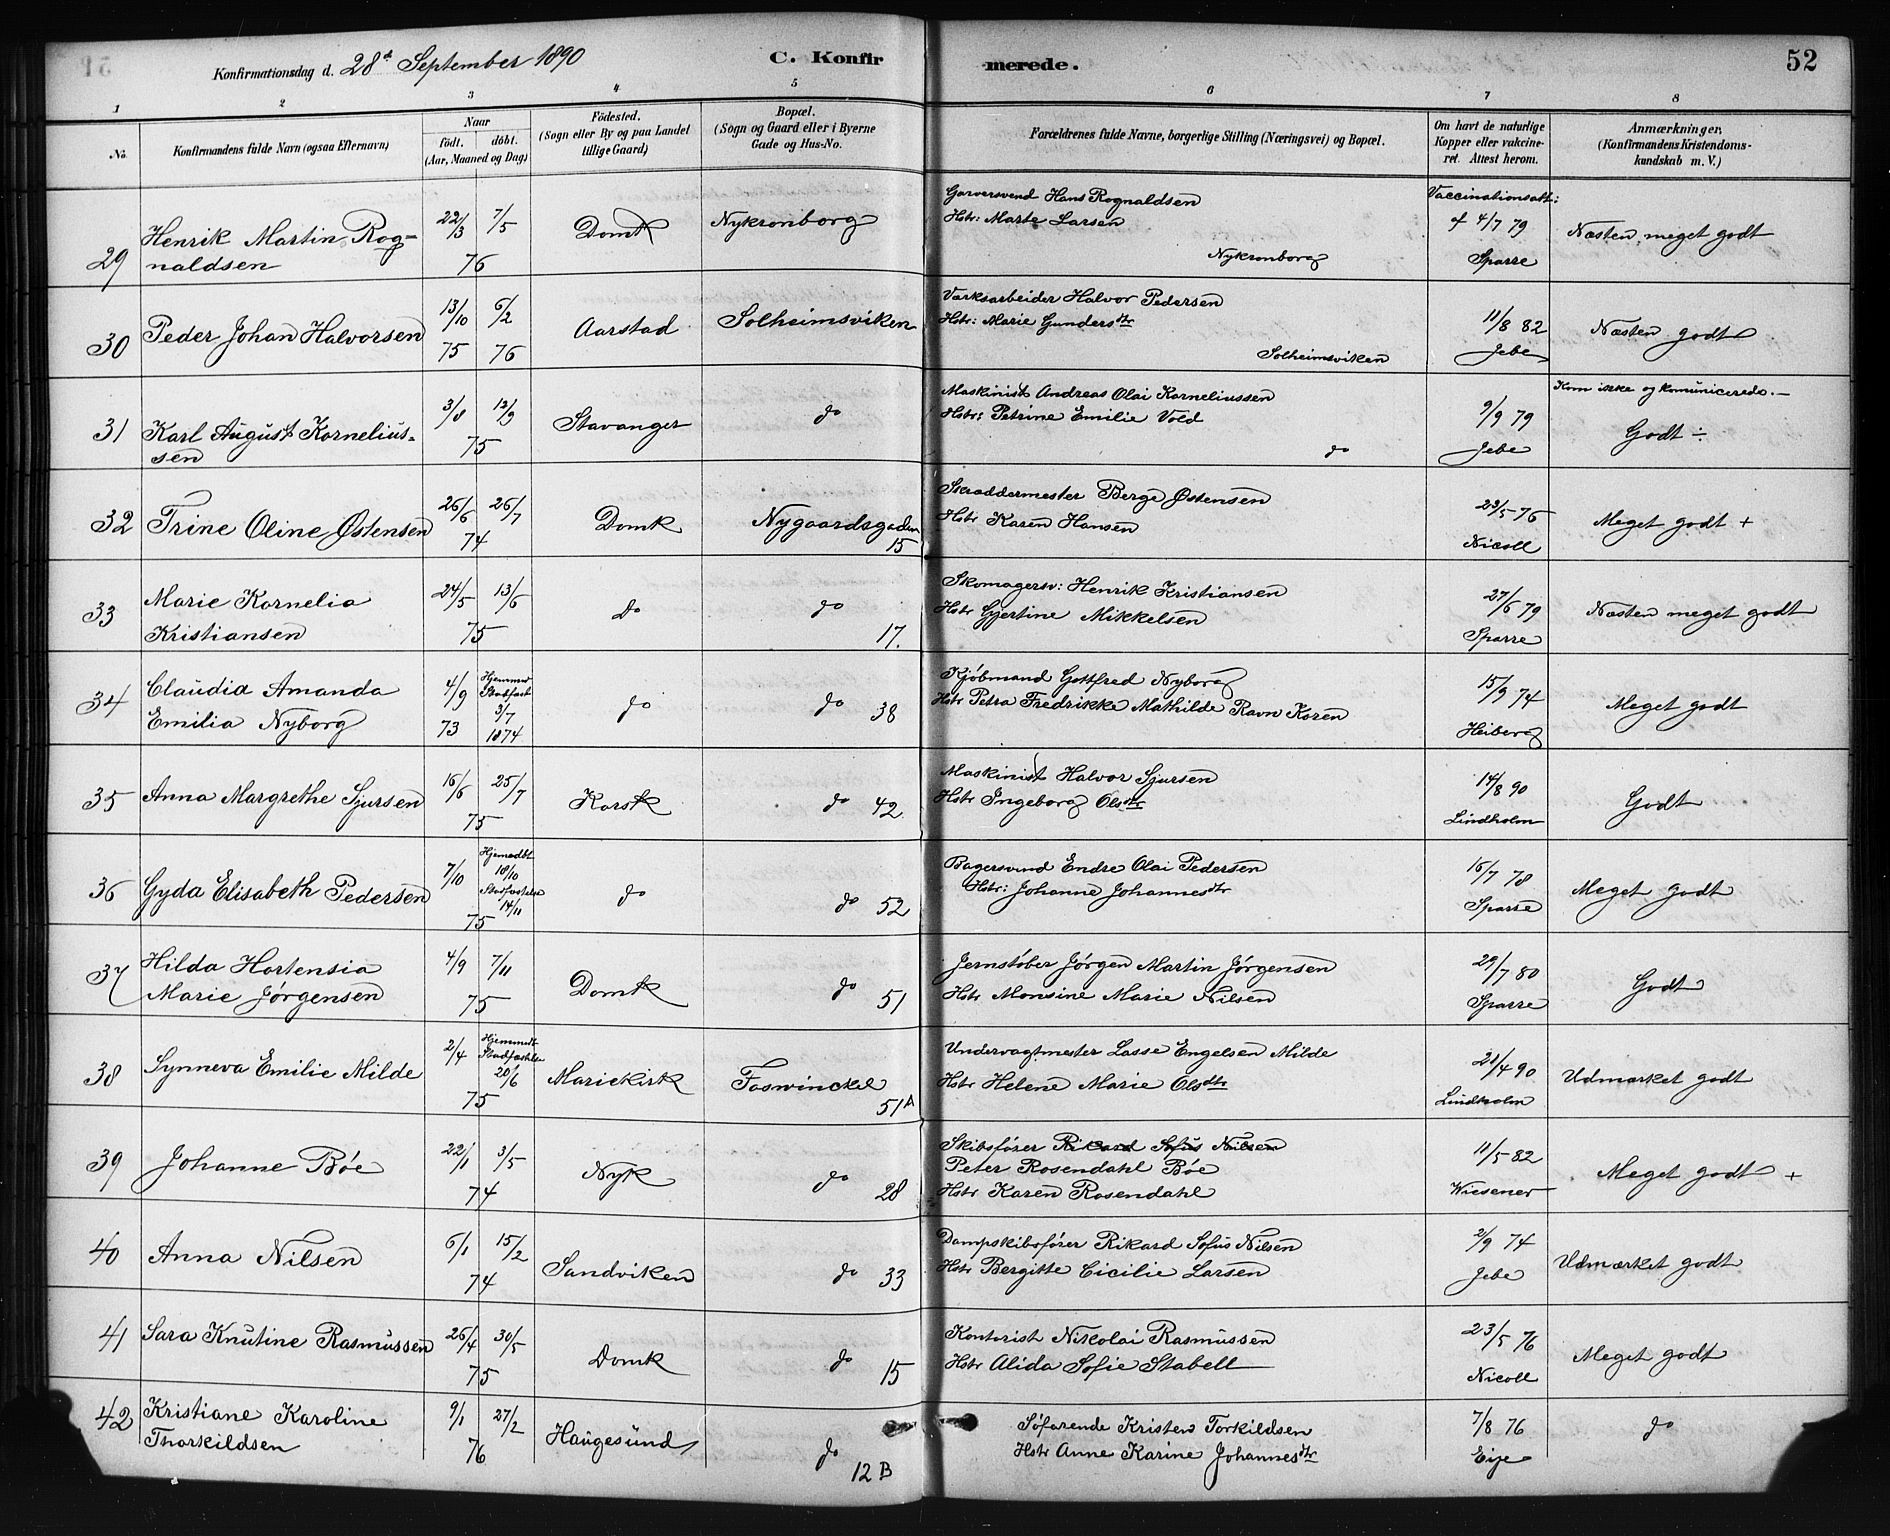 Konfirmationsdag d. 28de September 1890
C. Konfirmerede.
52
1 2 3 4 5 6 7 8
No.
Konfirmandens fulde Navn (ogsaa Efternavn)
Naar
født. døbt.
(Aar, Maaned og Dag)
Fødested.
(Sogn eller By og paa Landet
tillige Gaard)
Bopæl.
(Sogn og Gaard eller i Byerne
Gade og Hus-No.
Forældrenes fulde Navne, borgerlige Stilling (Næringsvei) og Bopæl.
Om havt de naturlige
Kopper eller vakcine-
ret. Attest herom.
Anmærkninger.
(Konfirmandens Kristendoms-
kundskab m. V.)
29 Henrik Martin Rog=
naldsen
22/3 7/5
76
Domk
Nykronborg
Garversvend Hans Rognaldsen
Hstr: Marte Larsen
Nykronborg
Vaccinationsatt:
af 4/7 79
Sparre
Næsten meget godt
30 Peder Johan Halvorsen
13/10 6/2
75 76
Aarstad
Solheimsviken
Værksarbeider Halvor Pedersen
Hstr: Marie Gundersdtr
Solheimsviken
11/8 82
Jebe
Næsten godt
31 Karl August Kornelius=
sen
3/8 12/9
75
Stavanger
do
Maskinist Andreas Olai Korneliussen
Hstr: Petrine Emilie Vold
do
9/9 79
Jebe
Kom ikke og komunicerede. —
Godt ÷
32 Trine Oline Østensen
26/6 26/7
74
Domk
Nygaardsgaden
15
Skræddermester Berge Østensen
Hstr Karen Hansen
23/5 76
Nicoll
Meget godt +
33 Marie Kornelia
Kristiansen
24/5 13/6
75
Do
do
17.
Skomagersv: Henrik Kristiansen
Hstr Gjertine Mikkelsen
27/6 79
Sparre
Næsten meget godt
34 Claudia Amanda
Emilia Nyborg
4/9
73
Hjemmed
Stadfæst
3/7
1874
do
do 38
Kjøbmand Gottfred Nyborg
Hstr Petra Fredrikke Mathilde Ravn Koren
15/9 74
Heiberg
Meget godt
35 Anna Margrethe Sjursen
16/6 25/7
75
Korsk
do 42
Maskinist Halvor Sjursen
Hstr Ingeborg Olsdtr
14/8 90
Lindholm
Godt
36 Gyda Elisabeth Pedersen
7/10
Hjemedbt
10/10
14/11
75
do
do 52
Bagersvend Endre Olai Pedersen
Hstr: Johanne Johannesdtr
16/7 78
Sparre
Meget godt
37 Hilda Hortensia
Marie Jørgensen
4/9 7/11
75
Domk
do 51
Jernstøber Jørgen Martin Jørgensen
Hstr Monsine Marie Nilsen
29/7 80
Sparre
Godt
38 Synneva Emilie Milde
2/4
Hjemmedt
20/6
75
Mariekirk
Foswinckel
51A
Undervagtmester Lasse Engelsen Milde
Hstr Helene Marie Olsdtr
21/4 90
Lindholm
Udmærket godt
39 Johanne Bøe
22/1 3/5
74
Nyk
do 28
Skibsfører Rikard Sofus Nilsen
Peter Rosendahl Bøe
Hstr Karen Rosendahl
11/5 82
Wiesener
Meget godt +
40 Anna Nilsen
6/1 15/2
74
Sandviken
do 33
Dampskibsfører Rikard Sofus Nilsen
Hstr Bergitte Cicilie Larsen
2/9 74
Jebe
Udmærket godt
41 Sara Knutine Rasmussen
26/4 30/5
75
Domk
do 15
Kontorist Nikolai Rasmussen
Hstr Alida Sofie Stabell
23/5 76
Nicoll
Meget godt
42 Kristiane Karoline
Thorkildsen
9/1 27/2
76
Haugesund
do
12 B
Søfarende Kristen Torkildsen
Hstr Anne Karine Johannesdtr
7/8 76
Eije
do